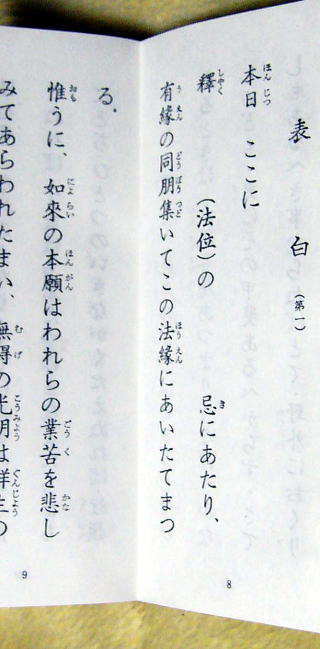 表白（第一）
本日ここに
釋　　　（法位）の　　　忌にあたり、
有縁の同朋集いてこの法縁にあいたてまつ
8
る。
惟うに、如來の本願はわれらの業苦を悲し
みてあらわれたまい、無碍の光明は群生の
9